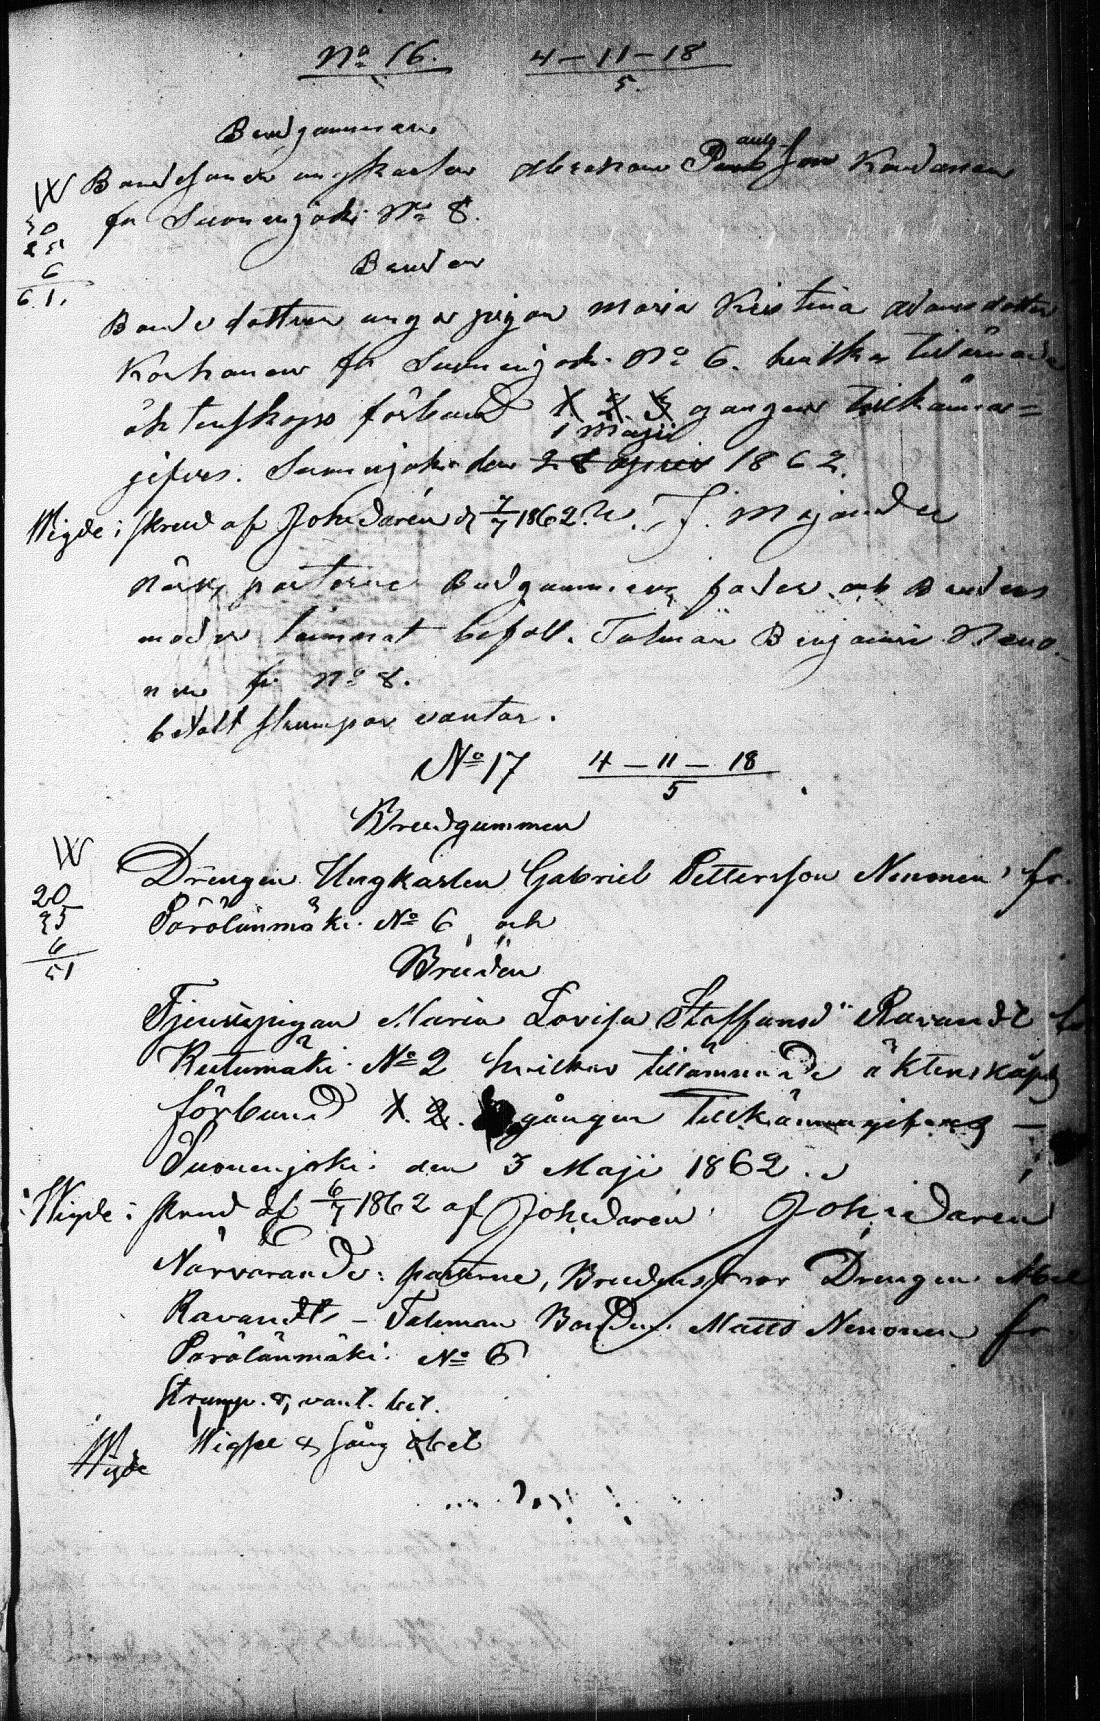 No 16. 4-11-18
5.
Brudgummen
Bondesonen ungkarlen Abraham Paulsson
fr Suonenjoki No 8.
W
30
25
6
61.
Bruden
Bondedottren unga pigan Maria Kristina Adamsdotter
Korhonen fr Suonenjoki No 6. hvilka tillärnade
äktenskaps förbund 1 2. 3 gånger tillkänna=
1 Maji
gifves. Suonenjoki den 28 April 1862.
Wigde: skrud af Joh. Darén d 7/7 1862. F. Majander
närv. parterne Brudgummens fader och Brudens
moder lemnat befall. Talman Benjamin Neno-
nen fr No 8.
betalt strumpor vantar.
No 17 4-11-18
5
Brudgummen
W
20
25
6
51
Drengen Ungkarlen Gabriel Pettersson Nenonen fr.
Pörölänmäki No 6 och
Bruden
Tjenstepigan Maria Lovisa Staffansd Ravandt fr
Rutumäki No 2 hvilkas tillämnade äktenskaps
förbund 1. 2. gången Tillkännagifves
Suonenjoki den 3 Maji 1862.
Wigde: skrud af 6/7 1862 af Joh. Darén Joh. Darén
Närvarande: parterne, Brudens far Drengen Abel
Ravandt - Taleman Bonden Matts Nenonen fr
Pörölänmäki No 6
Strump. & vant. bet.
Wigsel & sång bet
Wigde